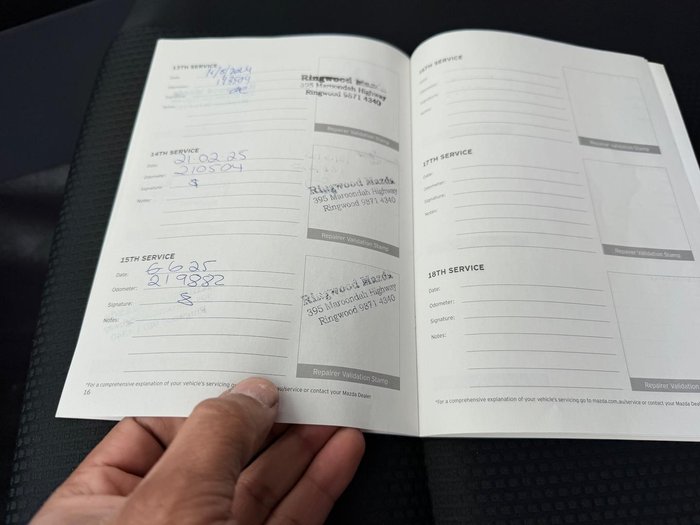 13TH SERVICE
Date:
Odometer:
Signature:
Notes:
Ringwood Mazda
395 Maroondah Highway
Ringwood 9871 4340
Repairer Validation Stamp
14TH SERVICE
Date: 21 02 25
Odometer: 210504
Signature:
Notes:
Ringwood Mazda
395 Maroondah Highway
Ringwood 9871 4340
Repairer Validation Stamp
15TH SERVICE
Date: 6 6 25
Odometer: 219882
Signature:
Notes:
Ringwood Mazda
395 Maroondah Highway
Ringwood 9871 4340
Repairer Validation Stamp
*For a comprehensive explanation of your vehicle's servicing go au/service or contact your Mazda Dealer
16
16TH SERVICE
Date:
Odometer:
Signature:
Notes:
Repairer Validation Stamp
17TH SERVICE
Date:
Odometer:
Signature:
Notes:
Repairer Validation Stamp
18TH SERVICE
Date:
Odometer:
Signature:
Notes:
Repairer Validation
*For a comprehensive explanation of your vehicle's servicing go to mazda.com.au/service or contact your Mazda